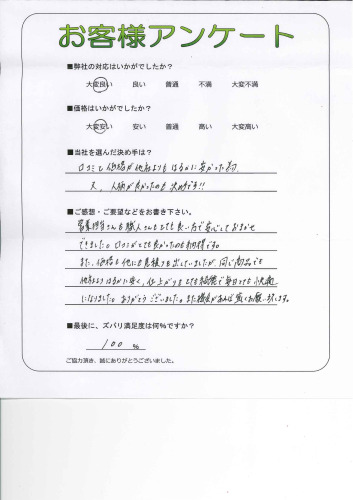 お客様アンケート
■弊社の対応はいかがでしたか？
大変良い 良い 普通 不満 大変不満
■価格はいかがでしたか？
大変安い 安い 普通 高い 大変高い
■当社を選んだ決め手は？
口コミと価格が他社よりもはるかに安かった為。
又、人柄が良かったのも決め手です!!
■ご感想・ご要望などをお書き下さい。
営業担当さんも職人さんもとても良い方で安心しておまかせ
できました。口コミがとても良かったのも納得です。
また、価格も他にも見積りを出していましたが、同じ商品でも
他社よりはるかに安く、仕上がりもとても綺麗で毎日とても快適
になりました。ありがとうございました。また機会があれば宜しくお願い致します。
■最後に、ズバリ満足度は何％ですか？
100 %
ご協力頂き、誠にありがとうございました。